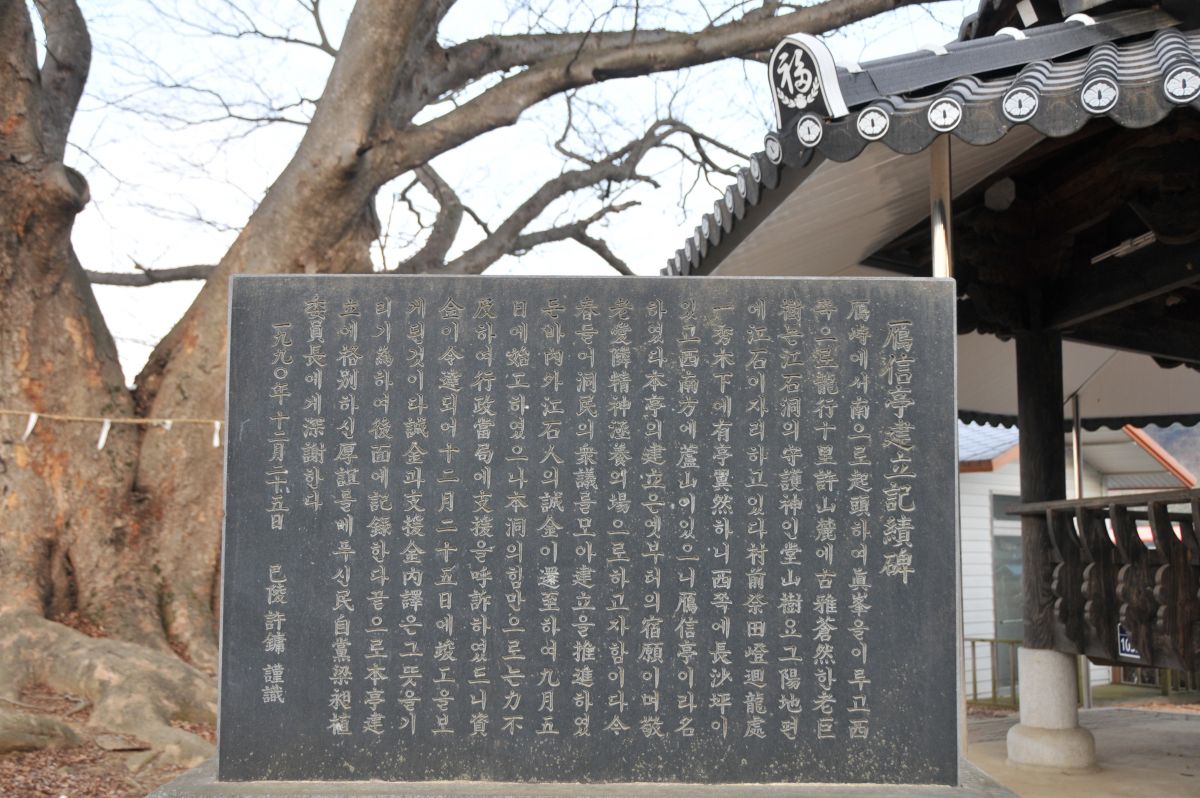 福
雁信亭建立記績碑
雁峙에서南으로起頭하여眞峯을이루고西
쪽으로龍行十里許山麓에古雅蒼然한老巨
樹는江石洞의守護神인堂山樹요그陽地편
에江石이자리하고있다村前榮田燈廻龍處
一秀木下에有亭翼然하니西쪽에長沙坪이
있고西南方에蘆山이있으니雁信亭이라名
하였다本亭의建立은옛부터의宿願이며敬
老愛隣精神涵養의場으로하고자함이다今
春들어洞民의衆議를모아建立을推進하였
든바內外江石人의誠金이還至하여九月五
日에始工하였으나本洞의힘만으로는力不
及하여行政當局에支援을呼訴하였드니資
金이令達되어十二月二十五日에竣工을보
게된것이라誠金과支援金內譯은그뜻을기
리기爲하여後面에記錄한다끝으로本亭建
立에格別하신厚誼를베푸신民自黨梁昶植
委員長에게深謝한다
一九九〇年十二月二十五日 巳陵 許鏞 謹識